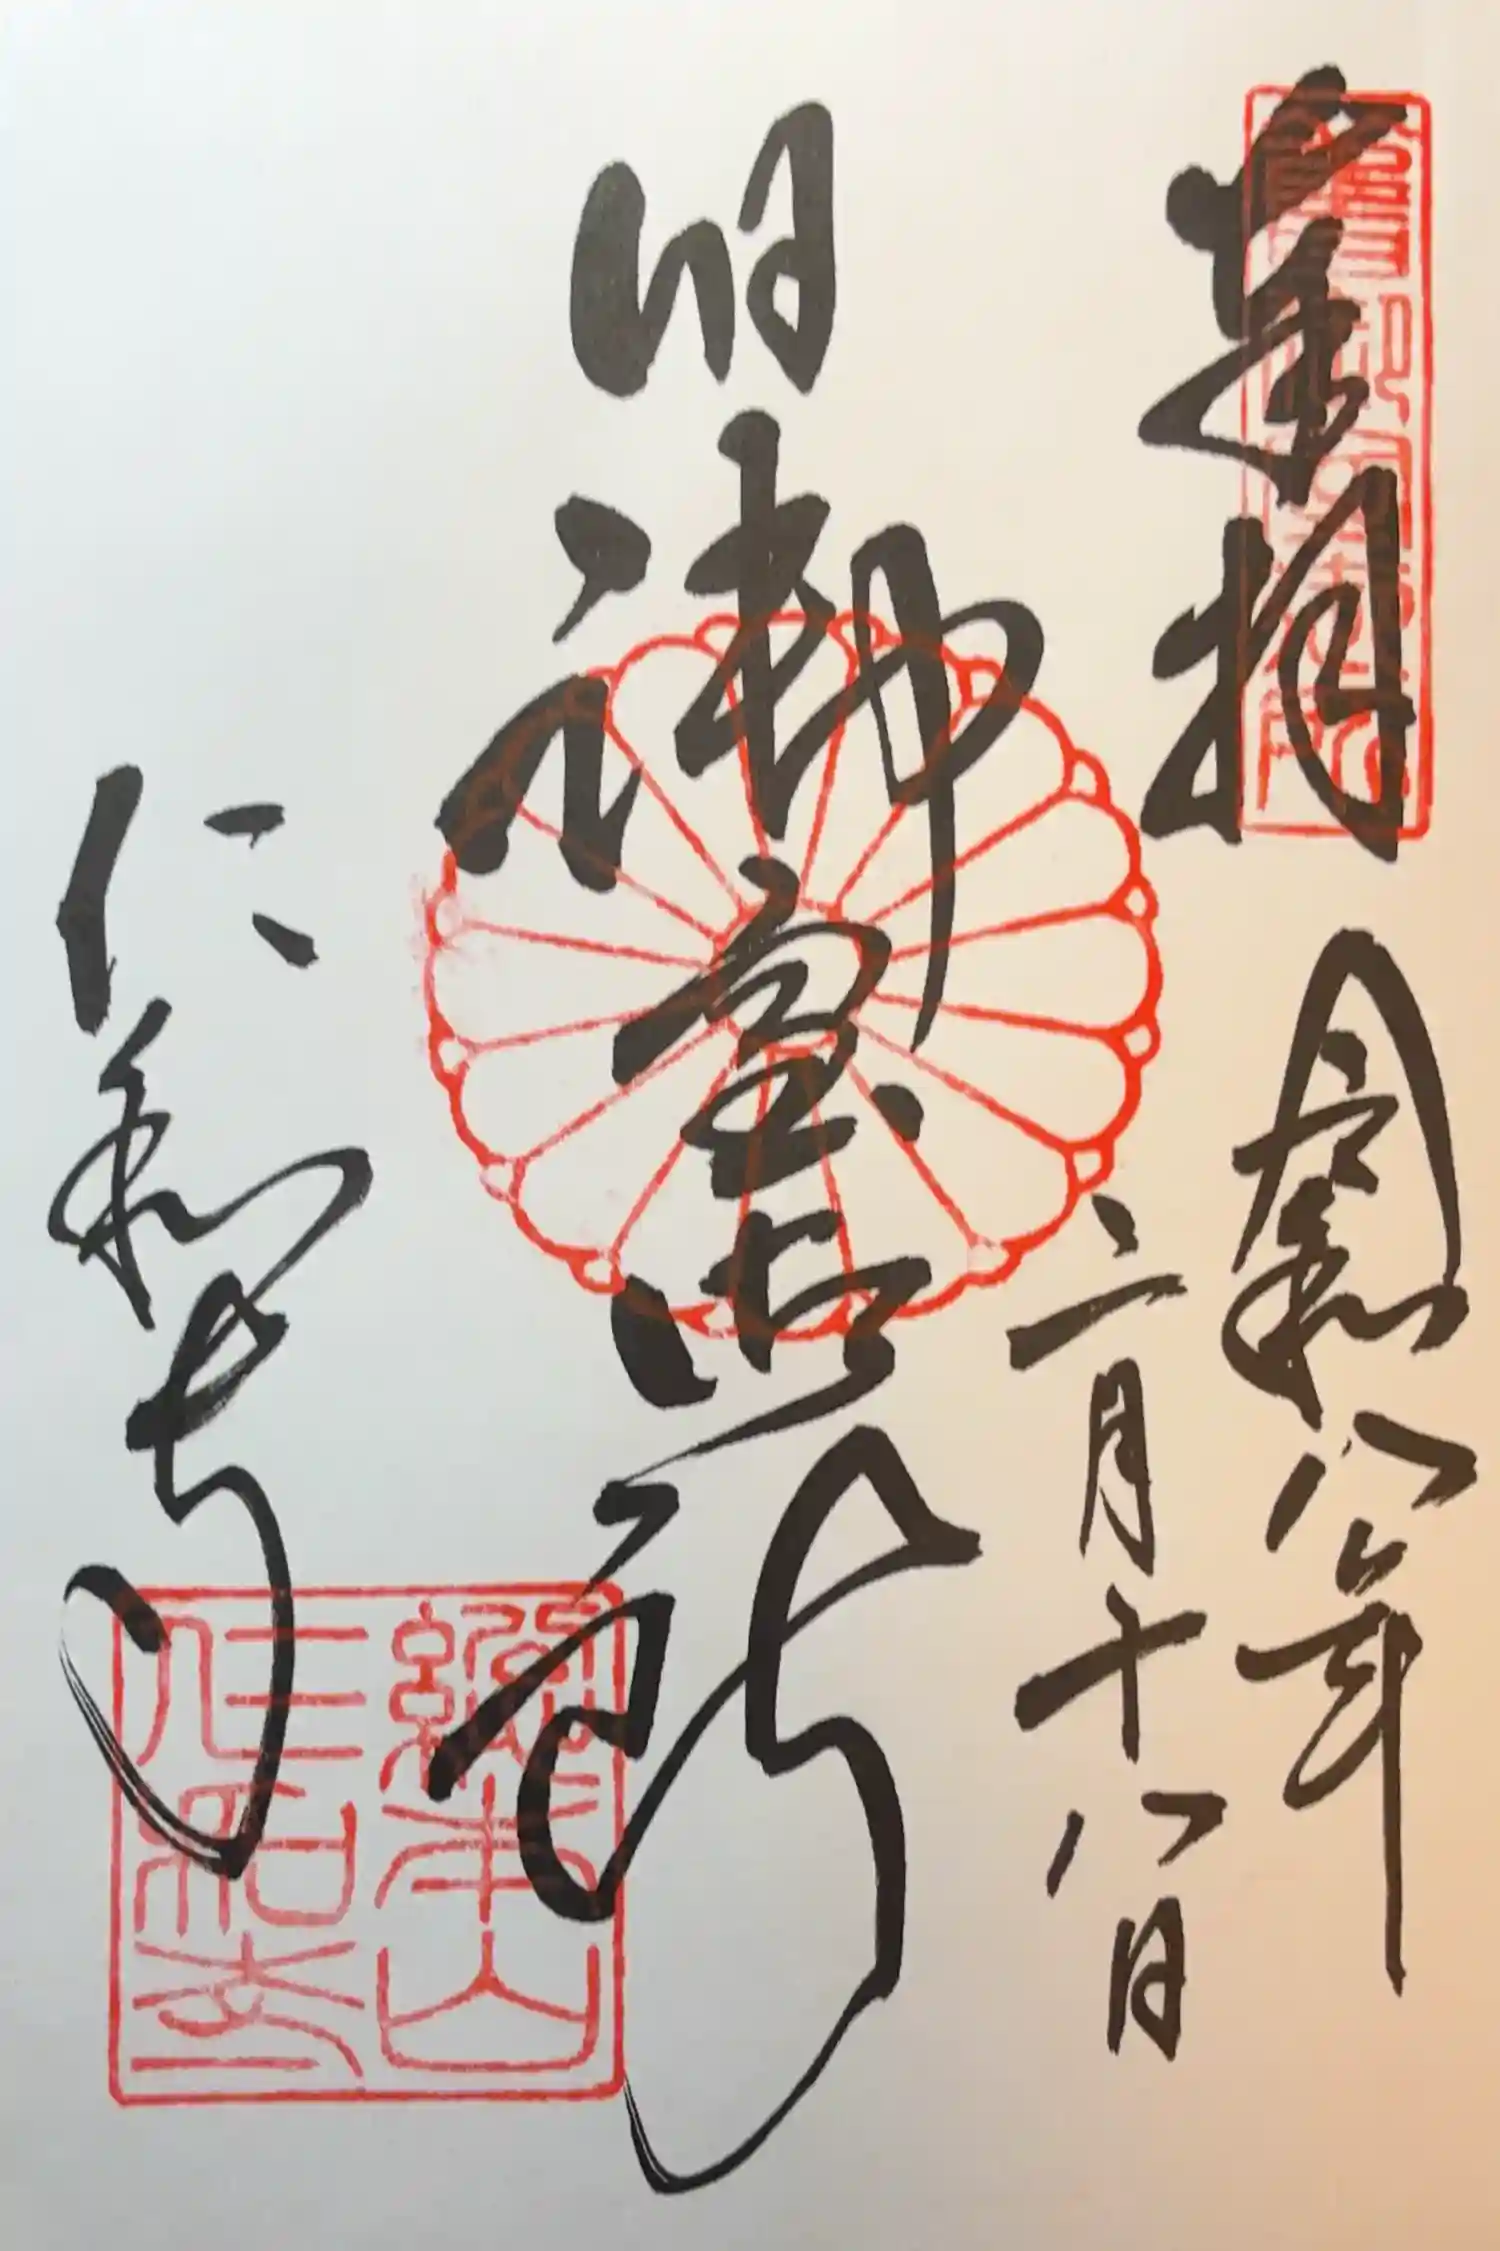 奉拝
令和八年
二月十八日
旧御室御所
仁和寺
總本山
仁和寺